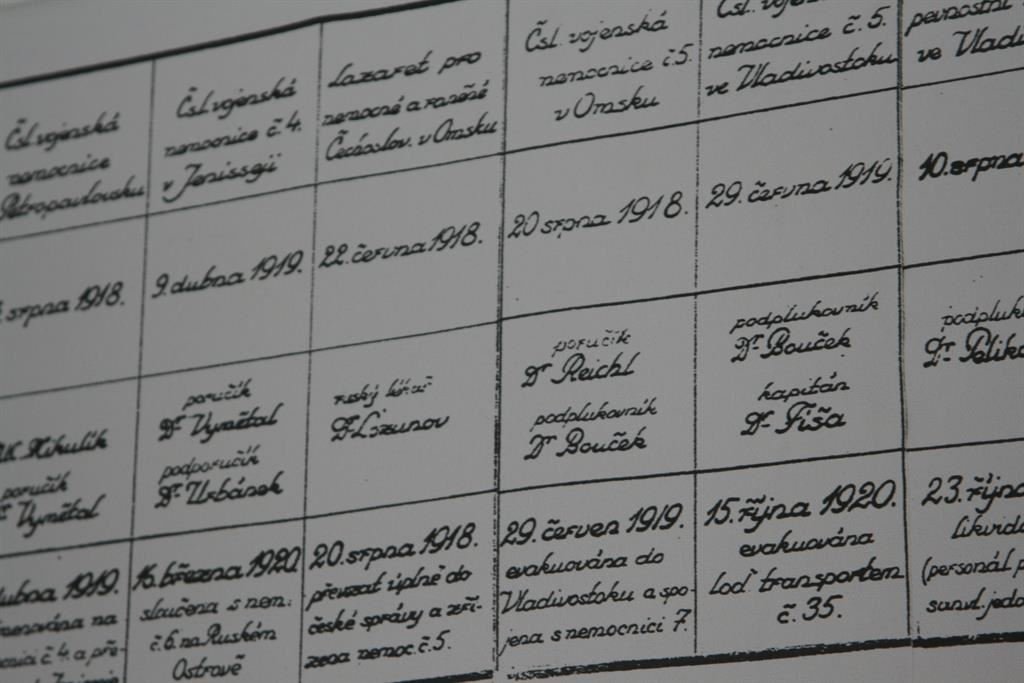 Čsl. vojenská
nemocnice
Petropavlovsku
Čsl. vojenská
nemocnice č. 4.
v Jenisseji
Lazaret pro
nemocné a raněné
Čechoslov. v Omsku
Čsl. vojenská
nemocnice č. 5.
v Omsku
Čsl.
nemocnice č. 5.
ve Vladivostoku
pevnostní
ve
srpna 1918.
9. dubna 1919.
22. června 1918.
20 srpna 1918.
29. června 1919.
10. srpna
Mikulík
poručík
Vymětal
poručík
Dr. Vymětal
podporučík
Dr. Urbánek
ruský lékař
Dr. Lozunov
poručík
Dr Reichl
podplukovník
Dr Bouček
podplukovník
Dr. Bouček
kapitán
Dr. Fiša
Dr.
1919.
na
č. 4 a
16. března 1920
sloučena s nem.
č. 6. na Ruském
Ostrově
20. srpna 1918.
převzat úplně do
české správy a zří-
zena nemoc. č. 5.
29. červen 1919.
evakuována do
Vladivostoku a spo-
jena s nemocnicí 7.
15. října 1920.
evakuována
loď transportem
č. 35.
23.
(personál